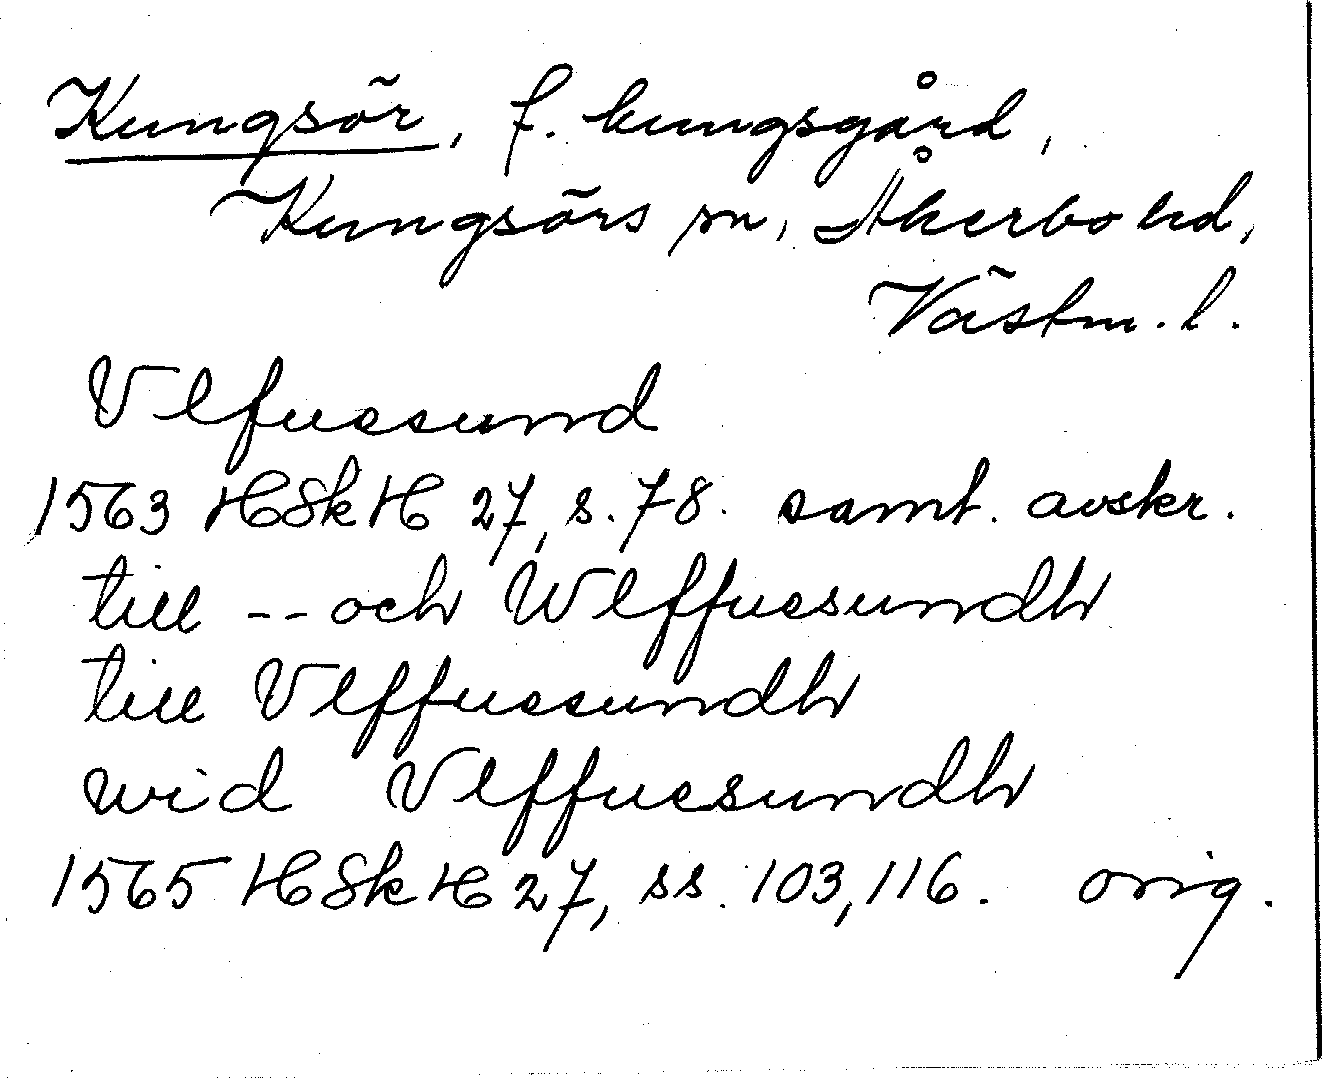 Kungsör, f. kungsgård,
Kungsörs sn, Åkerbo hd,
Västm. l.
Vlfuesund
1563 HSkH 27, s. 78. samt. avskr.
till -- och Wlffuesundh
till Vlffuesundh
wid Vlffuesundh
1565 HSkH 27, ss. 103, 116. orig.